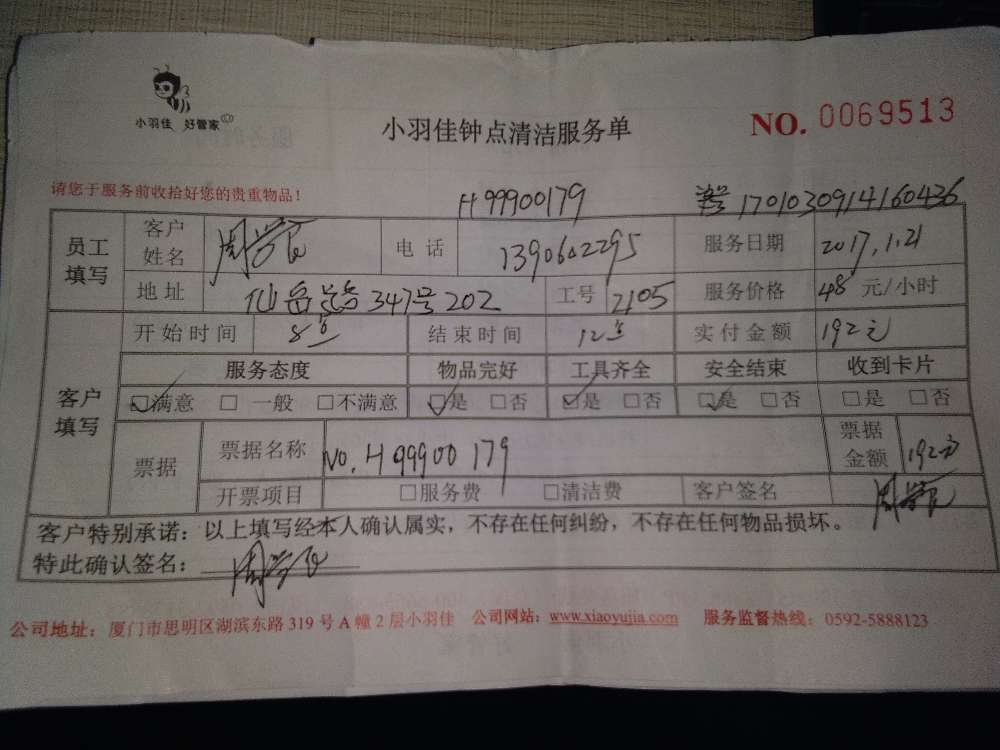 小羽佳 好管家
小羽佳钟点清洁服务单
NO. 0069513
请您于服务前收拾好您的贵重物品!
H99900179
170103091416 0436
员工填写
客户姓名
电话 1390602295
服务日期 2017,1.21
地址 仙岳路347号202
工号 2105
服务价格 48 元/小时
客户填写
开始时间 8
结束时间 12
实付金额 192元
服务态度 物品完好 工具齐全 安全结束 收到卡片
☑满意 □一般 □不满意 ☑是 □否 ☑是 □否 ☑是 □否 □是 □否
票据
票据名称 NO. H99900179
票据金额 192元
开票项目 □服务费 □清洁费 客户签名
客户特别承诺:以上填写经本人确认属实,不存在任何纠纷,不存在任何物品损坏。
特此确认签名:
公司地址:厦门市思明区湖滨东路 319 号 A 幢 2 层小羽佳 公司网站:www.xiaoyujia.com 服务监督热线:0592-5888123